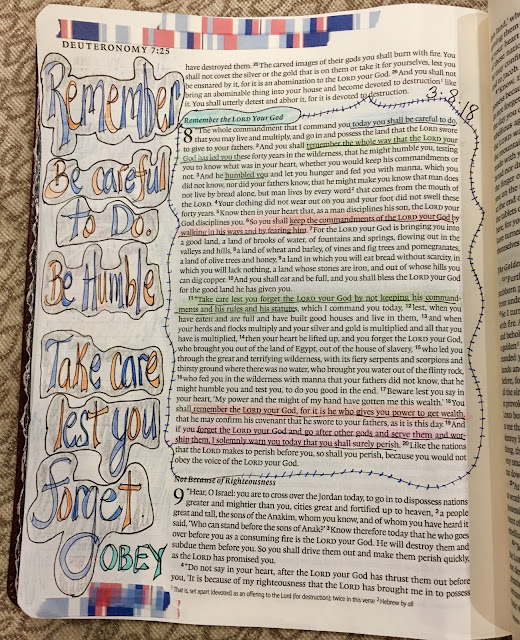 DEUTERONOMY 7:25
Remember
Be careful
To Do.
Be Humble
Take care
lest you
forget
OBEY
3-8-18
have destroyed them. 25 The carved images of their gods you shall burn with fire. You
shall not covet the silver or the gold that is on them or take it for yourselves, lest you
be ensnared by it, for it is an abomination to the LORD your God. 26 And you shall not
bring an abominable thing into your house and become devoted to destruction1 like
it. You shall utterly detest and abhor it, for it is devoted to destruction.
Remember the LORD Your God
8 "The whole commandment that I command you today you shall be careful to do,
that you may live and multiply, and go in and possess the land that the LORD swore
to give to your fathers. 2 And you shall remember the whole way that the LORD your
God has led you these forty years in the wilderness, that he might humble you, testing
you to know what was in your heart, whether you would keep his commandments or
not. 3 And he humbled you and let you hunger and fed you with manna, which you
did not know, nor did your fathers know, that he might make you know that man does
not live by bread alone, but man lives by every word2 that comes from the mouth of
the LORD. 4 Your clothing did not wear out on you and your foot did not swell these
forty years. 5 Know then in your heart that, as a man disciplines his son, the LORD your
God disciplines you. 6 So you shall keep the commandments of the LORD your God by
walking in his ways and by fearing him. 7 For the LORD your God is bringing you into
a good land, a land of brooks of water, of fountains and springs, flowing out in the
valleys and hills, 8 a land of wheat and barley, of vines and fig trees and pomegranates,
a land of olive trees and honey, 9 a land in which you will eat bread without scarcity, in
which you will lack nothing, a land whose stones are iron, and out of whose hills you
can dig copper. 10 And you shall eat and be full, and you shall bless the LORD your God
for the good land he has given you.
11 "Take care lest you forget the LORD your God by not keeping his command-
ments and his rules and his statutes, which I command you today, 12 lest, when you
have eaten and are full and have built good houses and live in them, 13 and when
your herds and flocks multiply and your silver and gold is multiplied and all that you
have is multiplied, 14 then your heart be lifted up, and you forget the LORD your God,
who brought you out of the land of Egypt, out of the house of slavery, 15 who led you
through the great and terrifying wilderness, with its fiery serpents and scorpions and
thirsty ground where there was no water, who brought you water out of the flinty rock,
16 who fed you in the wilderness with manna that your fathers did not know, that he
might humble you and test you, to do you good in the end. 17 Beware lest you say in
your heart, 'My power and the might of my hand have gotten me this wealth.' 18 You
shall remember the LORD your God, for it is he who gives you power to get wealth,
that he may confirm his covenant that he swore to your fathers, as it is this day. 19 And
if you forget the LORD your God and go after other gods and serve them and wor-
ship them, I solemnly warn you today that you shall surely perish. 20 Like the nations
that the LORD makes to perish before you, so shall you perish, because you would not
obey the voice of the LORD your God.
Not Because of Righteousness
9 "Hear, O Israel: you are to cross over the Jordan today, to go in to dispossess nations
greater and mightier than you, cities great and fortified up to heaven, 2 a people
great and tall, the sons of the Anakim, whom you know, and of whom you have heard it
said, 'Who can stand before the sons of Anak?' 3 Know therefore today that he who goes
over before you as a consuming fire is the LORD your God. He will destroy them and
subdue them before you. So you shall drive them out and make them perish quickly,
as the LORD has promised you.
4 "Do not say in your heart, after the LORD your God has thrust them out before
you, 'It is because of my righteousness that the LORD has brought me in to possess
1 That is, set apart (devoted) as an offering to the Lord (for destruction); twice in this verse 2 Hebrew by all